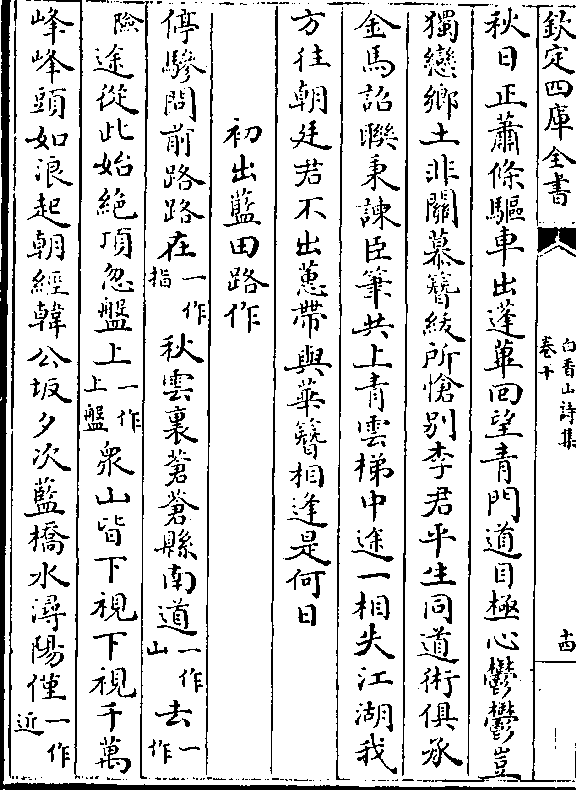 欽定四庫全書
白香山詩集
卷十
十四
秋日正蕭條驅車出蓬蓽回望青門道目極心鬱鬱豈
獨戀鄉土非關慕簪紱所愴别李君平生同道術俱承
金馬詔聯秉諫臣筆共上青雲梯中途一相失江湖我
方往朝廷君不出蕙帶與華簪相逢是何日
初出藍田路作
停驂問前路路在一作指秋雲裏蒼蒼縣南道一作山去一作
險途從此始絶頂忽盤上一作上盤衆山皆下視下視千萬
峰峰頭如浪起朝經韓公坂夕次藍橋水潯陽僅一作近